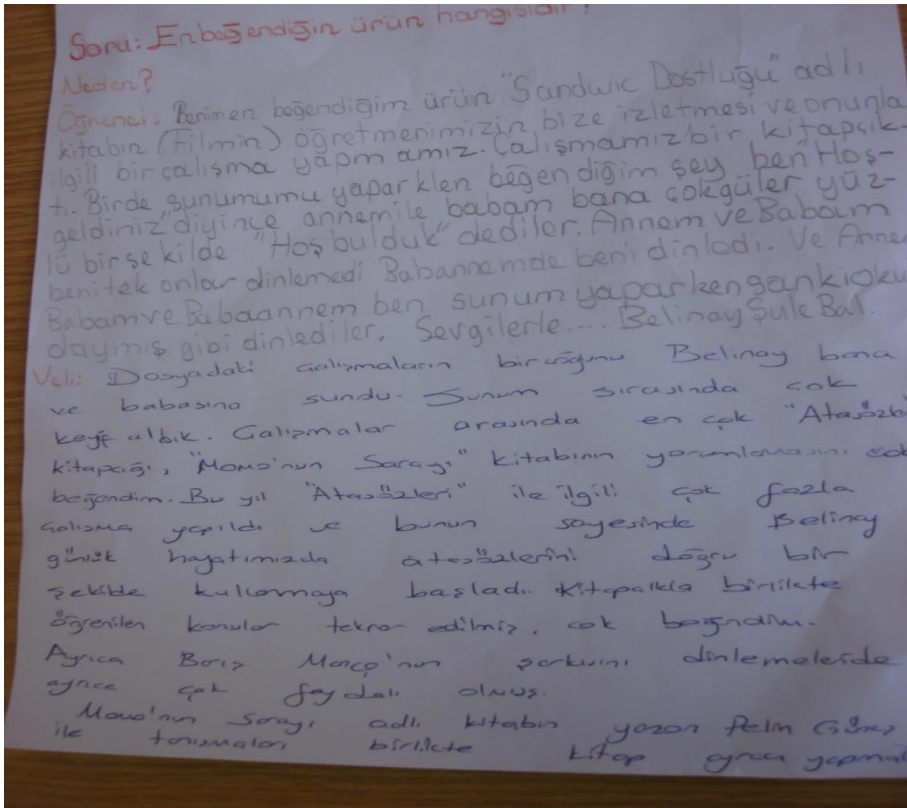 Soru: En beğendiğin ürün hangisidir?
Neden?
Öğrenci: Benimen beğendiğim ürün "Sandwic Dostluğu" adlı
kitabın (Filmin) öğretmenimizin bize izletmesi ve onunla
ilgili bir çalışma yapmamız. Çalışmamız bir kitapçık-
tı. Birde sunumumu yaparklen beğendiğim şey ben "Hoş-
geldiniz" diyince annemile babam bana çokgüler yüz-
lü birşekilde "Hoş bulduk" dediler. Annem ve Babam
benitek onlar dinlemedi Babannemde beni dinledi. Ve Anne
Babamve Babaannem ben sunum yaparken sankioku
daymış gibi dinlediler. Sevgilerle.... Belinay Şule Bal.
Veli: Dosyadaki çalışmaların birçoğunu Belinay bana
ve babasına sundu. Sunum sırasında çok
keyf aldık. Çalışmalar arasında en çok "Atasözle
kitapçığı, "Momo'nun Sarayı" kitabının yorumlamasını çok
beğendim. Bu yıl "Atasözleri" ile ilgili çok fazla
çalışma yapıldı ve bunun sayesinde Belinay
günlük hayatımızda atasözlerini doğru bir
şekilde kullamaya başladı. Kitapalkla birlikte
öğrenilen konular tekrar edilmiş, çok beğendim.
Ayrıca Barış Manço'nun şarkısını dinlemeleride
ayrıca çok faydalı olmuş.
Momo'nun Sarayı adlı kitabın yazarı Pelin Güneş
ile tanışmaları birlikte kitap ayracı yapmal